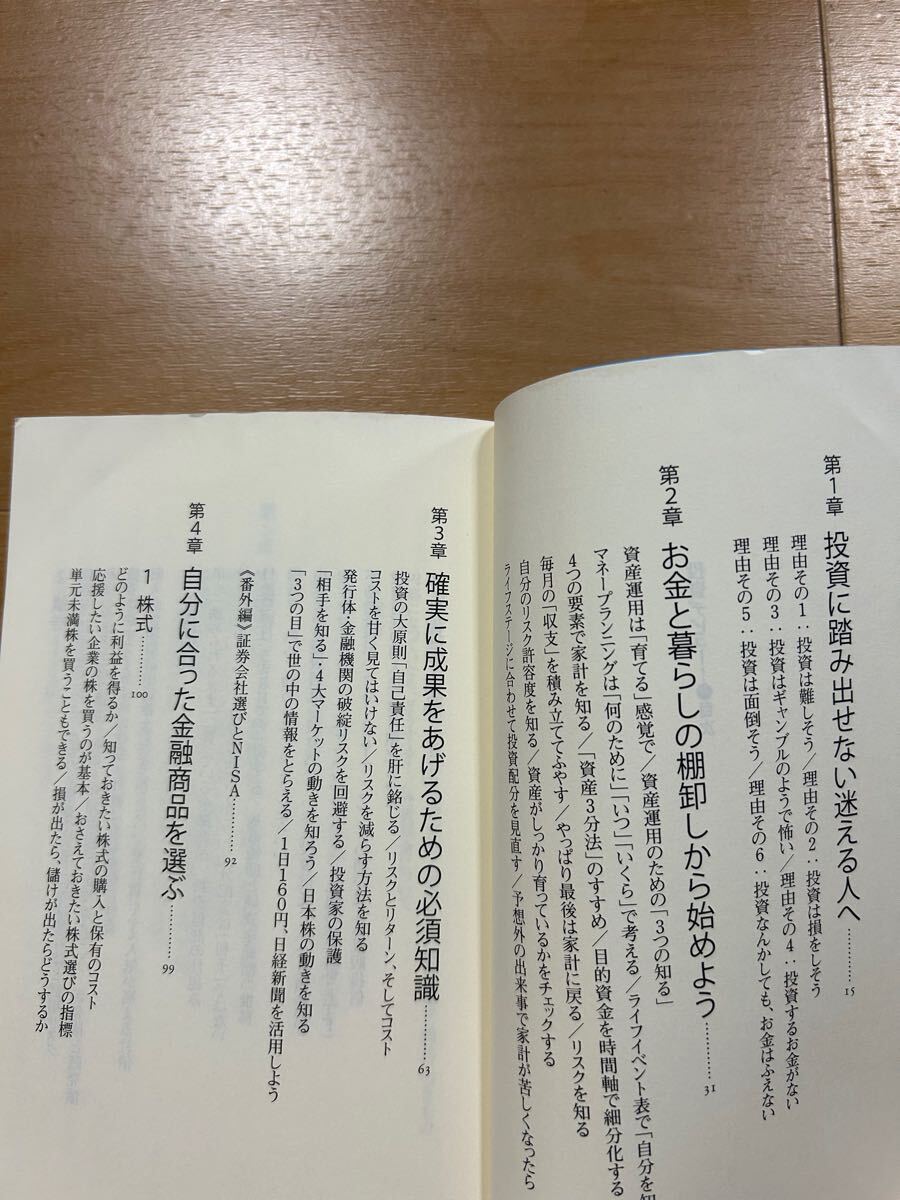 第1章 投資に踏み出せない迷える人へ………… 15
理由その1：投資は難しそう／理由その2：投資は損をしそう
理由その3：投資はギャンブルのようで怖い／理由その4：投資するお金がない
理由その5：投資は面倒そう／理由その6：投資なんかしても、お金はふえない
第2章 お金と暮らしの棚卸しから始めよう………… 31
資産運用は「育てる」感覚で／資産運用のための「3つの知る」
マネープランニングは「何のために」「いつ」「いくら」で考える／ライフイベント表で「自分を知
4つの要素で家計を知る／「資産3分法」のすすめ／目的資金を時間軸で細分化する
毎月の「収支」を積み立ててふやす／やっぱり最後は家計に戻る／リスクを知る
自分のリスク許容度を知る／資産がしっかり育っているかをチェックする
ライフステージに合わせて投資配分を見直す／予想外の出来事で家計が苦しくなったら
第3章 確実に成果をあげるための必須知識………… 63
投資の大原則「自己責任」を肝に銘じる／リスクとリターン、そしてコスト
コストを甘く見てはいけない／リスクを減らす方法を知る
発行体・金融機関の破綻リスクを回避する／投資家の保護
「相手を知る」・4大マーケットの動きを知ろう／日本株の動きを知る
「3つの目」で世の中の情報をとらえる／1日160円、日経新聞を活用しよう
《番外編》証券会社選びとNISA………… 92
第4章 自分に合った金融商品を選ぶ………… 99
1 株式………… 100
どのように利益を得るか／知っておきたい株式の購入と保有のコスト
応援したい企業の株を買うのが基本／おさえておきたい株式選びの指標
単元未満株を買うこともできる／損が出たら、儲けが出たらどうするか